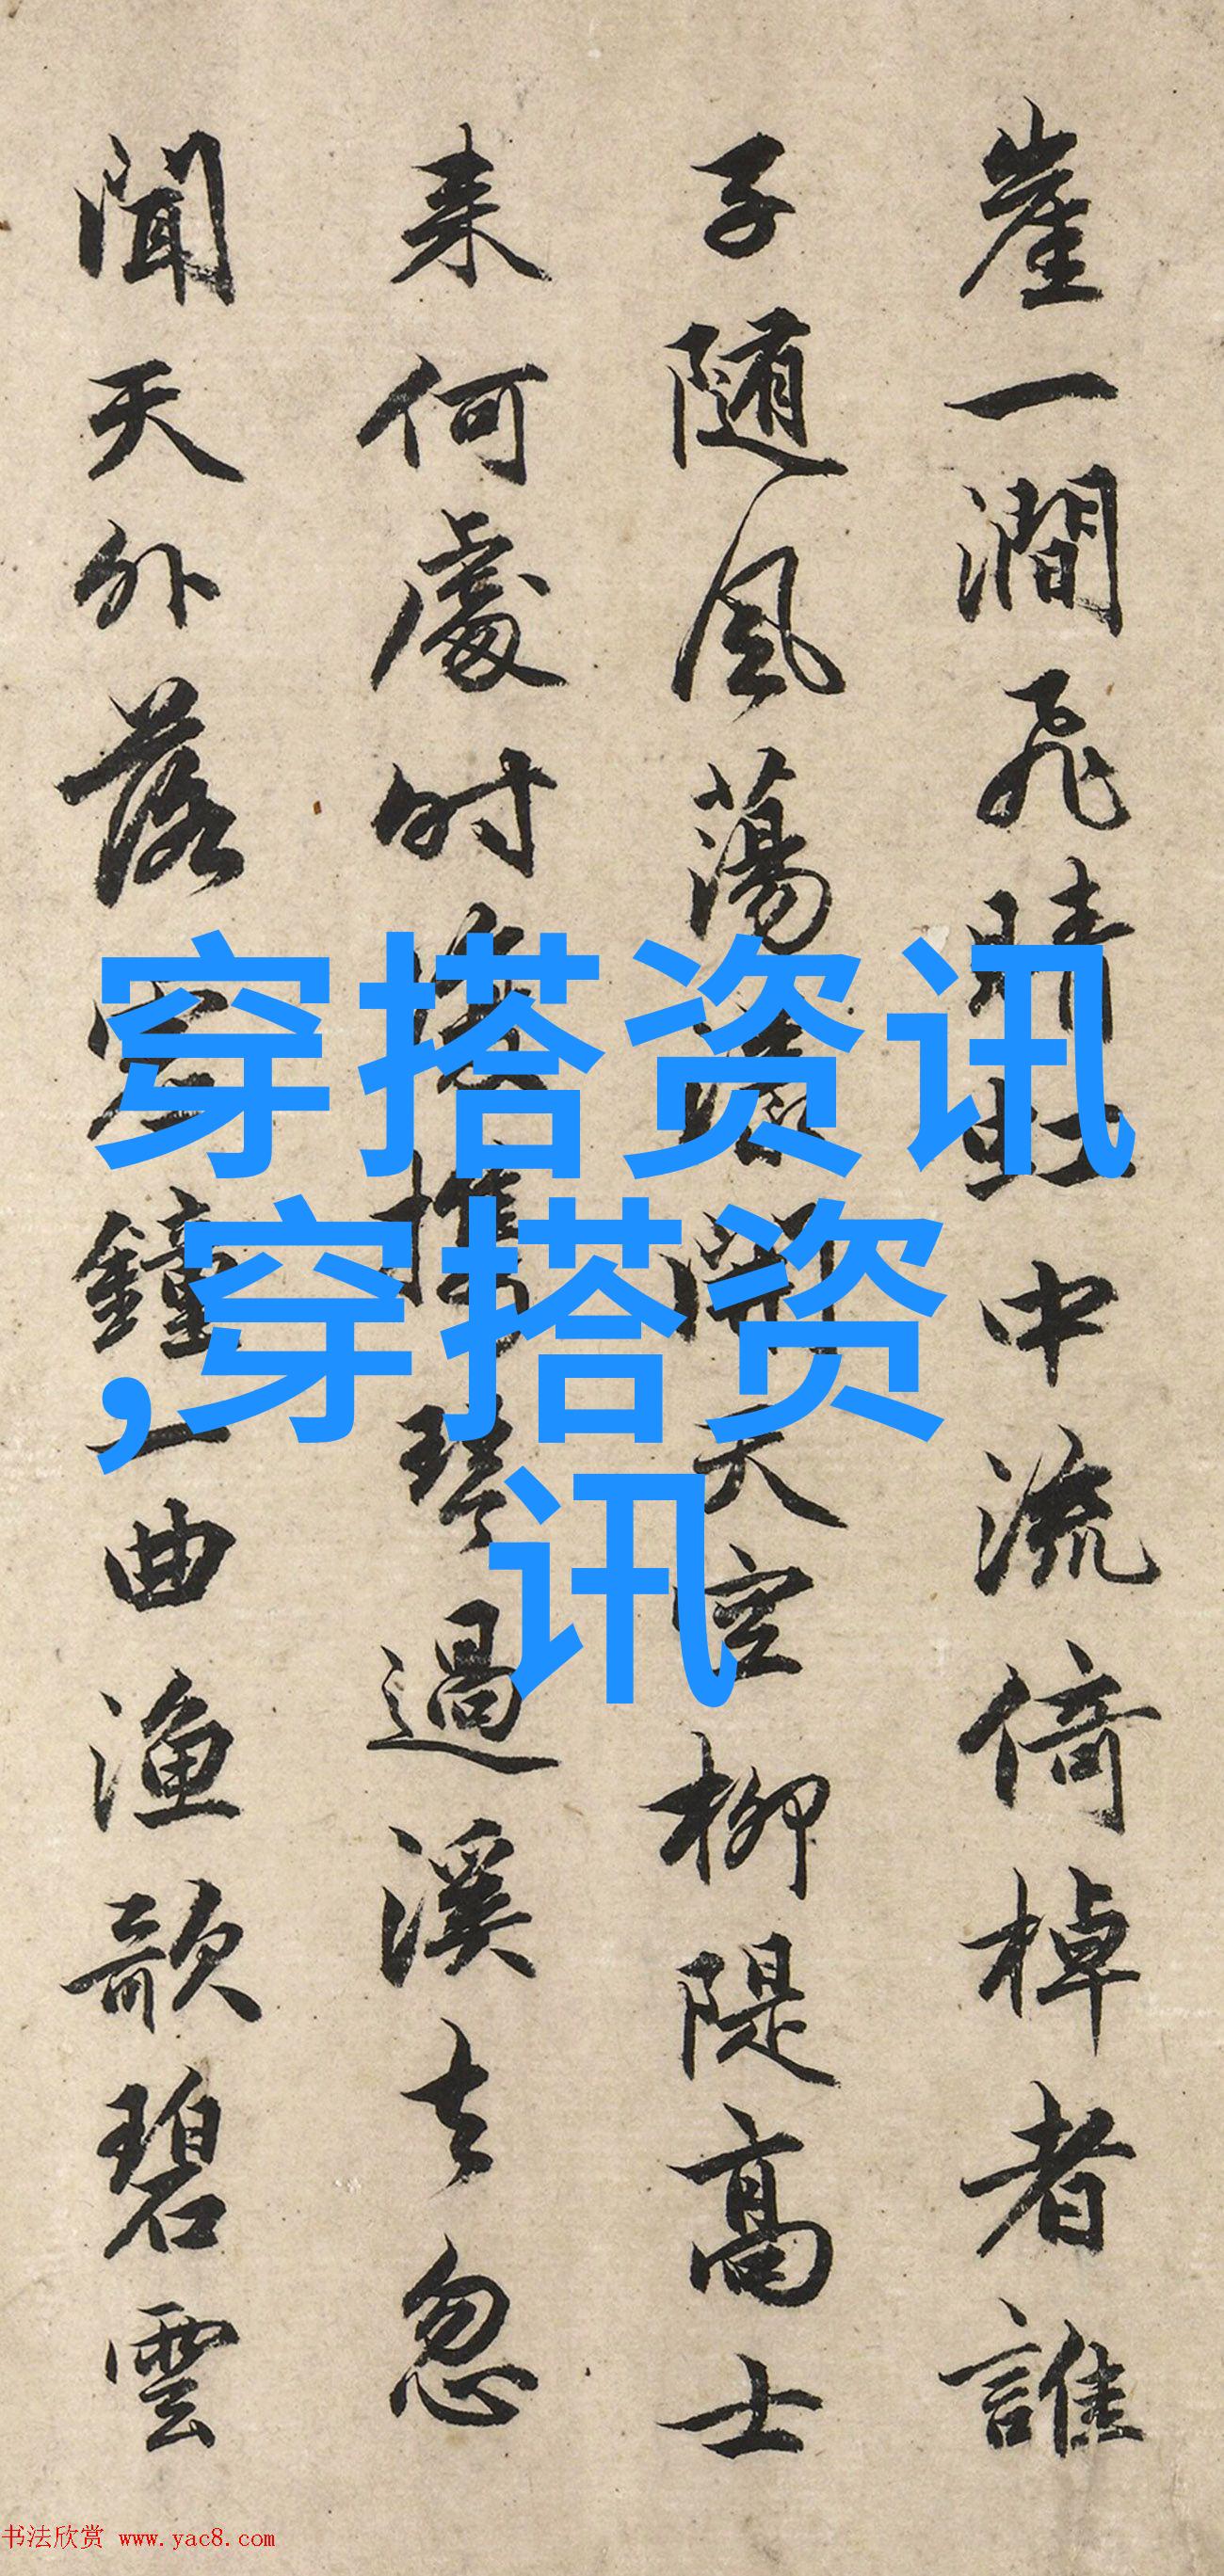 崖一澗飛晴虹中流倚棹者誰
子隨風蕩漾開天空柳隄高士
来何處時復攜琴過溪去忽
聞天外落霜鐘一曲漁歌碧雲
穿搭资讯
,穿搭资
讯
书法欣赏 www.yac8.com